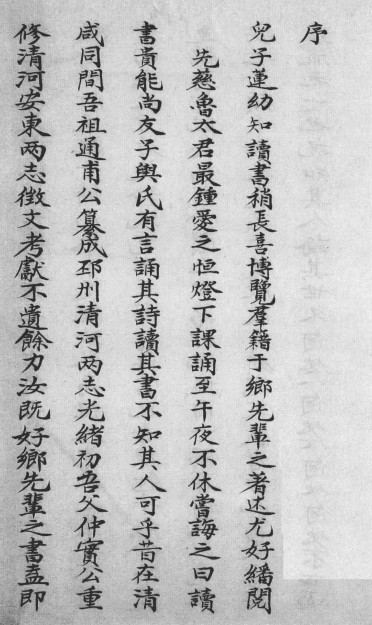 序
兒子蓮幼知讀書稍長喜博覽羣籍于鄉先輩之著述尤好繙閱
先慈魯太君最鍾愛之恒燈下課誦至午夜不休嘗誨之曰讀
書貴能尚友子輿氏有言誦其詩讀其書不知其人可乎昔在清
咸同間吾祖通甫公纂成邳州清河两志光緒初吾父仲實公重
修清河安東两志徵文考獻不遺餘力汝既好鄉先輩之書盍即